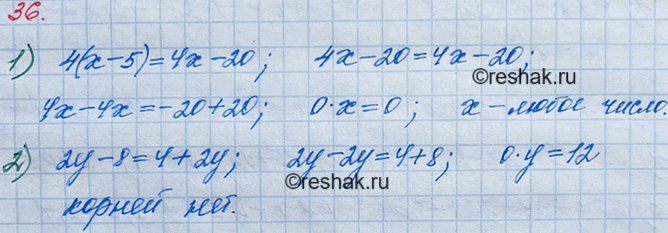 36.
1) 4(x-5)=4x-20; 4x-20=4x-20;
4x-4x=-20+20; 0·x=0; x-любое число.
©reshak.ru
2) 2y-8=4+2y; 2y-2y=4+8; 0·y=12
©reshak.ru
корней нет.